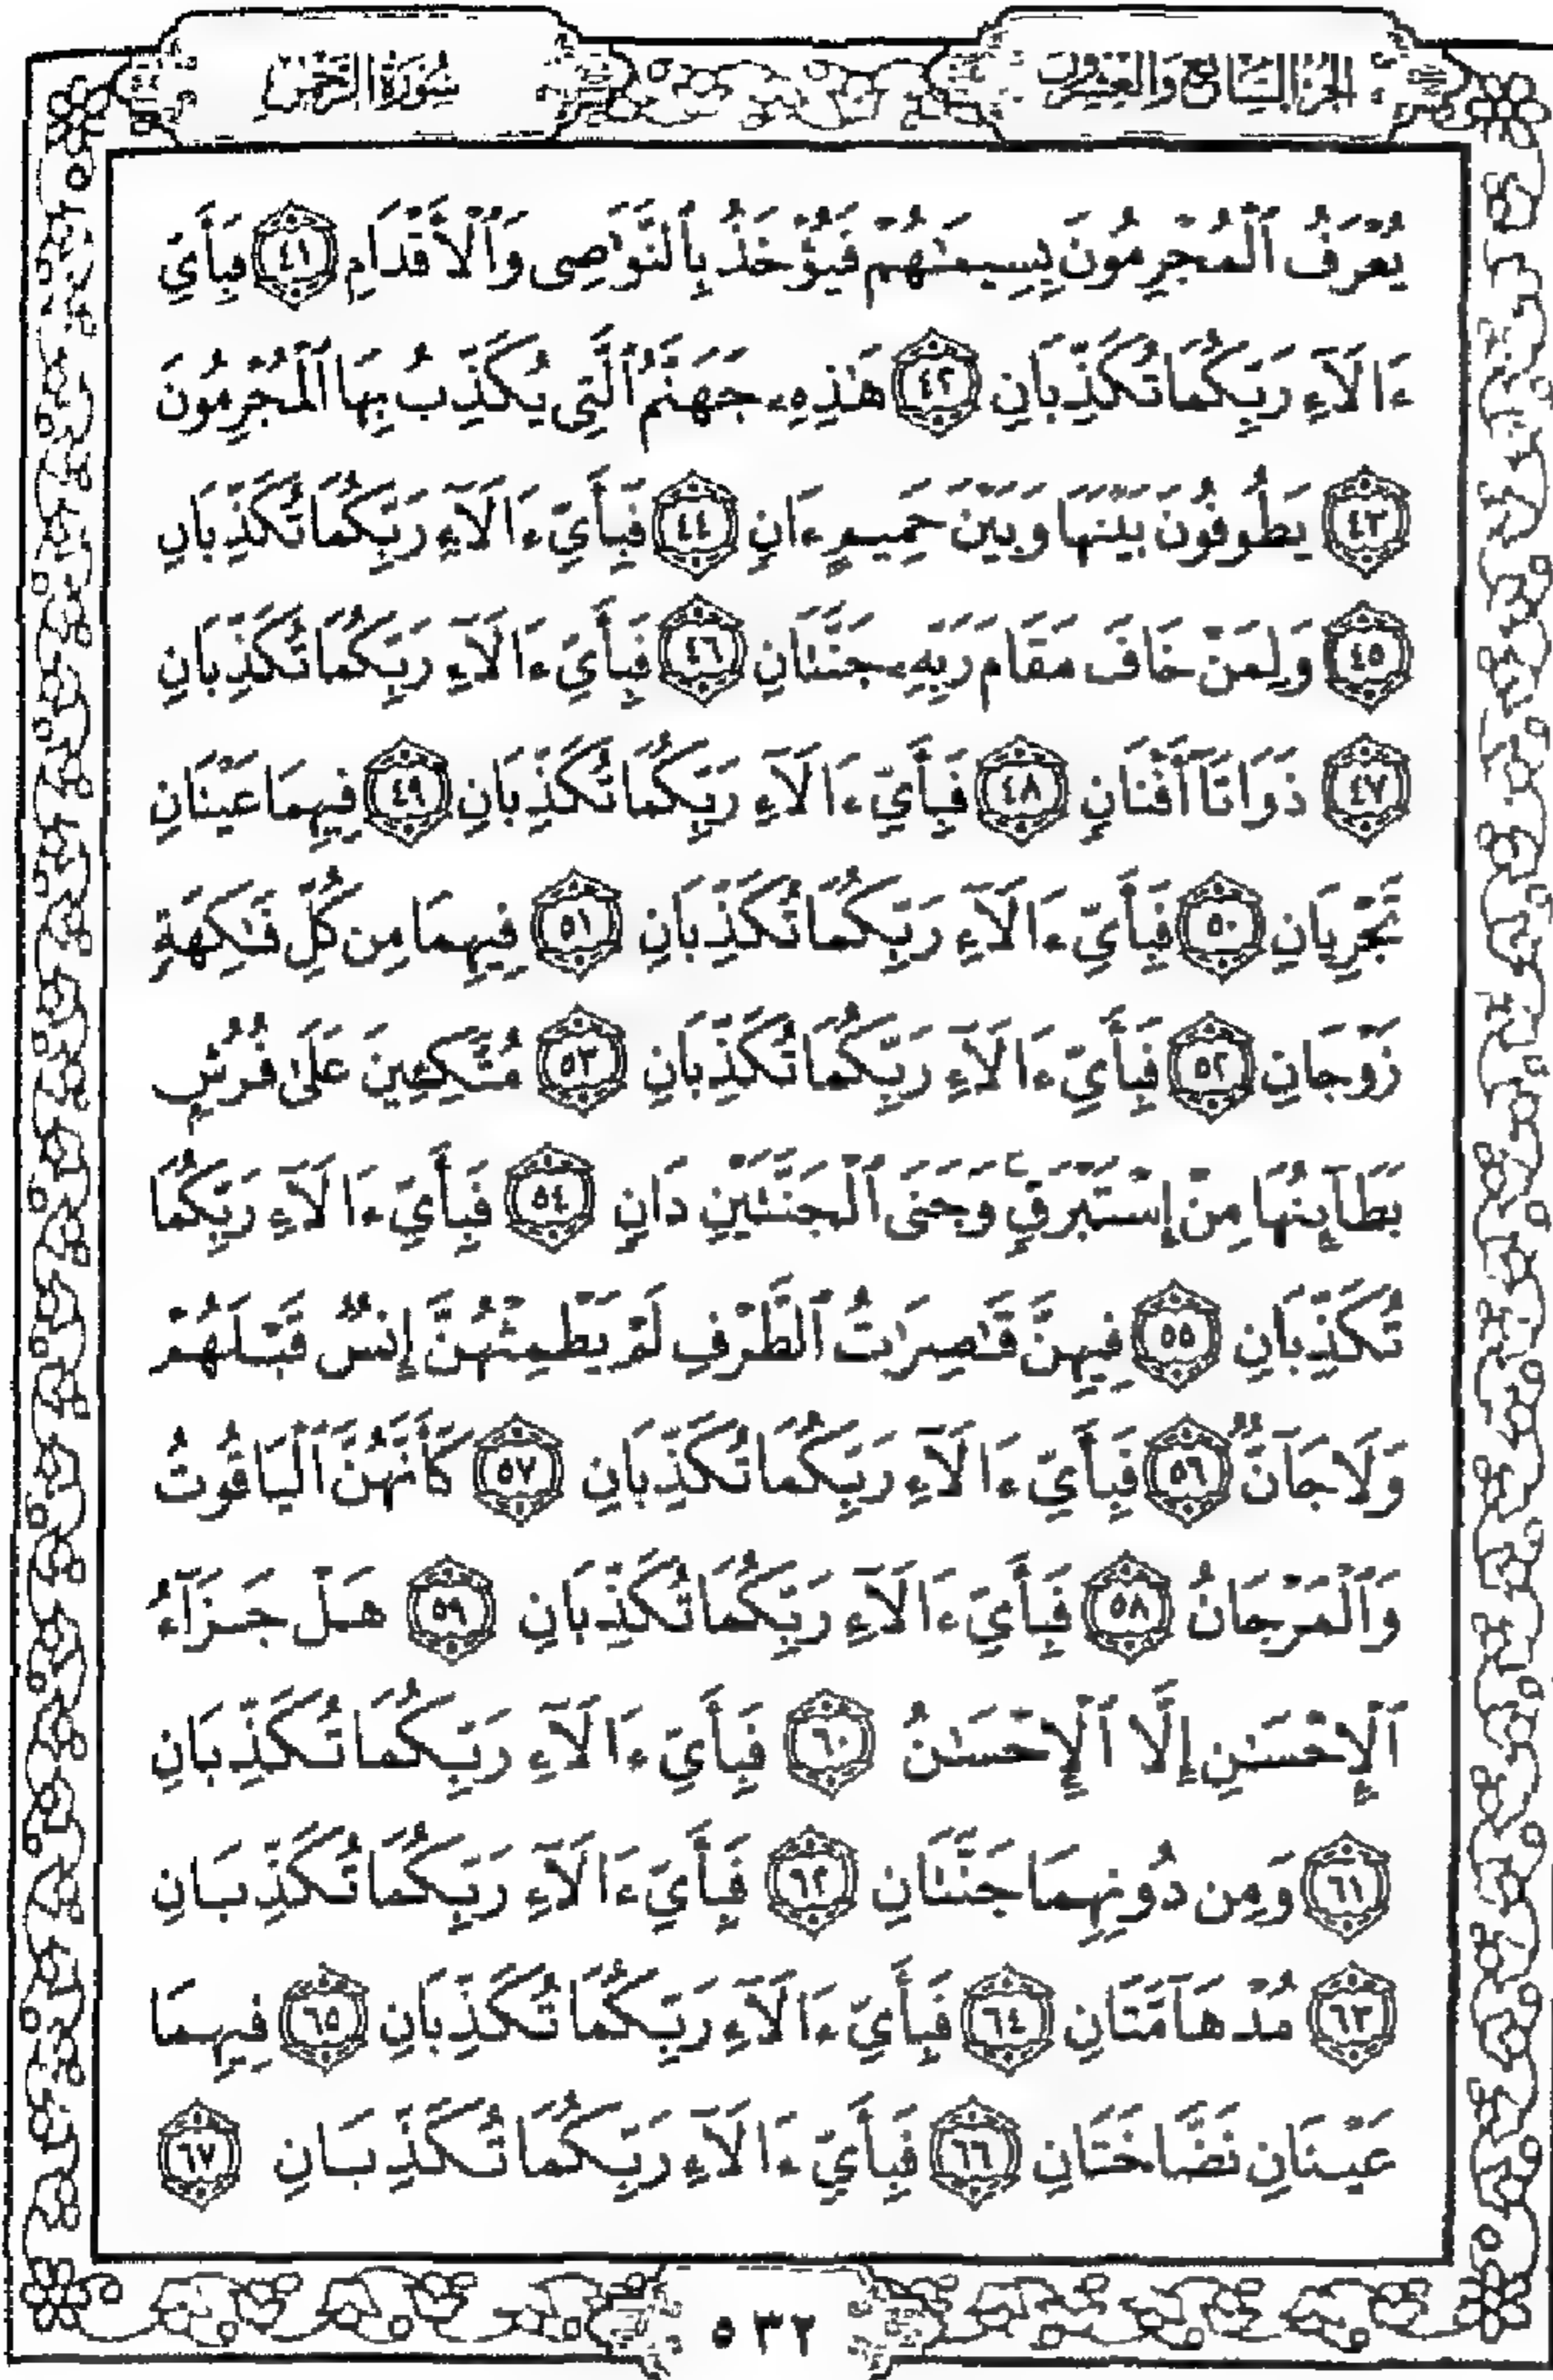 الجزء السابع والعشرون
سورة الرحمن
يُعْرَفُ ٱلْمُجْرِمُونَ بِسِيمَٰهُمْ فَيُؤْخَذُ بِٱلنَّوَٰصِى وَٱلْأَقْدَامِ ٤١ فَبِأَىِّ
ءَالَآءِ رَبِّكُمَا تُكَذِّبَانِ ٤٢ هَٰذِهِۦ جَهَنَّمُ ٱلَّتِى يُكَذِّبُ بِهَا ٱلْمُجْرِمُونَ
٤٣ يَطُوفُونَ بَيْنَهَا وَبَيْنَ حَمِيمٍ ءَانٍ ٤٤ فَبِأَىِّ ءَالَآءِ رَبِّكُمَا تُكَذِّبَانِ
٤٥ وَلِمَنْ خَافَ مَقَامَ رَبِّهِۦ جَنَّتَانِ ٤٦ فَبِأَىِّ ءَالَآءِ رَبِّكُمَا تُكَذِّبَانِ
٤٧ ذَوَاتَآ أَفْنَانٍ ٤٨ فَبِأَىِّ ءَالَآءِ رَبِّكُمَا تُكَذِّبَانِ ٤٩ فِيهِمَا عَيْنَانِ
تَجْرِيَانِ ٥٠ فَبِأَىِّ ءَالَآءِ رَبِّكُمَا تُكَذِّبَانِ ٥١ فِيهِمَا مِن كُلِّ فَٰكِهَةٍ
زَوْجَانِ ٥٢ فَبِأَىِّ ءَالَآءِ رَبِّكُمَا تُكَذِّبَانِ ٥٣ مُتَّكِـِٔينَ عَلَىٰ فُرُشٍۭ
بَطَآئِنُهَا مِنْ إِسْتَبْرَقٍ ۚ وَجَنَى ٱلْجَنَّتَيْنِ دَانٍ ٥٤ فَبِأَىِّ ءَالَآءِ رَبِّكُمَا
تُكَذِّبَانِ ٥٥ فِيهِنَّ قَٰصِرَٰتُ ٱلطَّرْفِ لَمْ يَطْمِثْهُنَّ إِنسٌ قَبْلَهُمْ
وَلَا جَآنٌّ ٥٦ فَبِأَىِّ ءَالَآءِ رَبِّكُمَا تُكَذِّبَانِ ٥٧ كَأَنَّهُنَّ ٱلْيَاقُوتُ
وَٱلْمَرْجَانُ ٥٨ فَبِأَىِّ ءَالَآءِ رَبِّكُمَا تُكَذِّبَانِ ٥٩ هَلْ جَزَآءُ
ٱلْإِحْسَٰنِ إِلَّا ٱلْإِحْسَٰنُ ٦٠ فَبِأَىِّ ءَالَآءِ رَبِّكُمَا تُكَذِّبَانِ
٦١ وَمِن دُونِهِمَا جَنَّتَانِ ٦٢ فَبِأَىِّ ءَالَآءِ رَبِّكُمَا تُكَذِّبَانِ
٦٣ مُدْهَآمَّتَانِ ٦٤ فَبِأَىِّ ءَالَآءِ رَبِّكُمَا تُكَذِّبَانِ ٦٥ فِيهِمَا
عَيْنَانِ نَضَّاخَتَانِ ٦٦ فَبِأَىِّ ءَالَآءِ رَبِّكُمَا تُكَذِّبَانِ ٦٧
٥٣٢